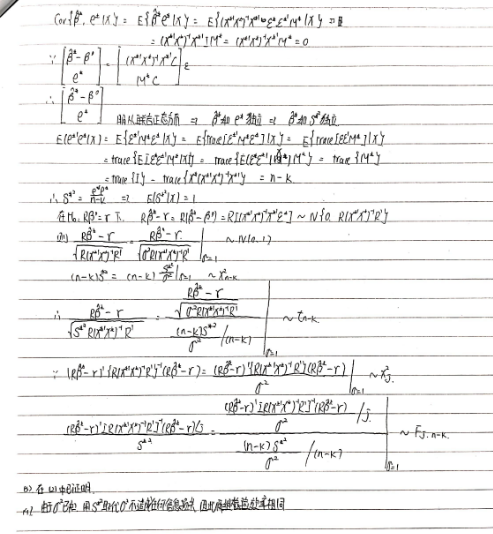 Cov{β̂*, e*|X} = E{β̂*e*'|X} = E{(X*'X*)⁻¹X*'ε*ε*'M*|X}
= (X*'X*)⁻¹X*'IM* = (X*'X*)⁻¹X*'M* = 0
∵ [β̂*-β⁰; e*] = [(X*'X*)⁻¹X*'C; M*C] ε
∴ [β̂*-β⁰; e*] 服从联合正态分布 ⇒ β̂*和e*独立 ⇒ β̂*和S*²独立
E(e*'e*|X) = E{ε*'M*ε*|X} = E{trace[ε*'M*ε*]|X} = E{trace[ε*ε*'M*]|X}
= trace{E[ε*ε*'M*|X]} = trace{E(ε*ε*'|X)M*} = trace{M*}
= trace{I} - trace{X*(X*'X*)⁻¹X*'} = n-k
∴ S*² = e*'e*/(n-k) ⇒ E(S*²|X) = 1
在H₀: Rβ⁰=r下, Rβ̂*-r = R(β̂*-β⁰) = R[(X*'X*)⁻¹X*'ε*] ~ N{0, R(X*'X*)⁻¹R'}
则 (Rβ̂*-r)/√(R(X*'X*)⁻¹R') = (Rβ̂*-r)/√(σ²R(X*'X*)⁻¹R') |σ=1 ~ N(0,1)
(n-k)S*² = (n-k) S*²/σ² |σ=1 ~ χ²n-k
∴ (Rβ̂*-r)/√(S*²R(X*'X*)⁻¹R') = (Rβ̂*-r)/√(σ²R(X*'X*)⁻¹R') / √((n-k)S*²/σ² /(n-k)) |σ=1 ~ tn-k
∵ (Rβ̂*-r)'[R(X*'X*)⁻¹R']⁻¹(Rβ̂*-r) = (Rβ̂*-r)'[R(X*'X*)⁻¹R']⁻¹(Rβ̂*-r)/σ² |σ=1 ~ χ²J
(Rβ̂*-r)'[R(X*'X*)⁻¹R']⁻¹(Rβ̂*-r)/J / S*² = (Rβ̂*-r)'[R(X*'X*)⁻¹R']⁻¹(Rβ̂*-r)/σ² /J / (n-k)S*²/σ² /(n-k) |σ=1 ~ FJ,n-k
在(2)中已证明
由于σ²已知, 用S*²取代σ²不造成任何信息损失, 因此两种检验效率相同